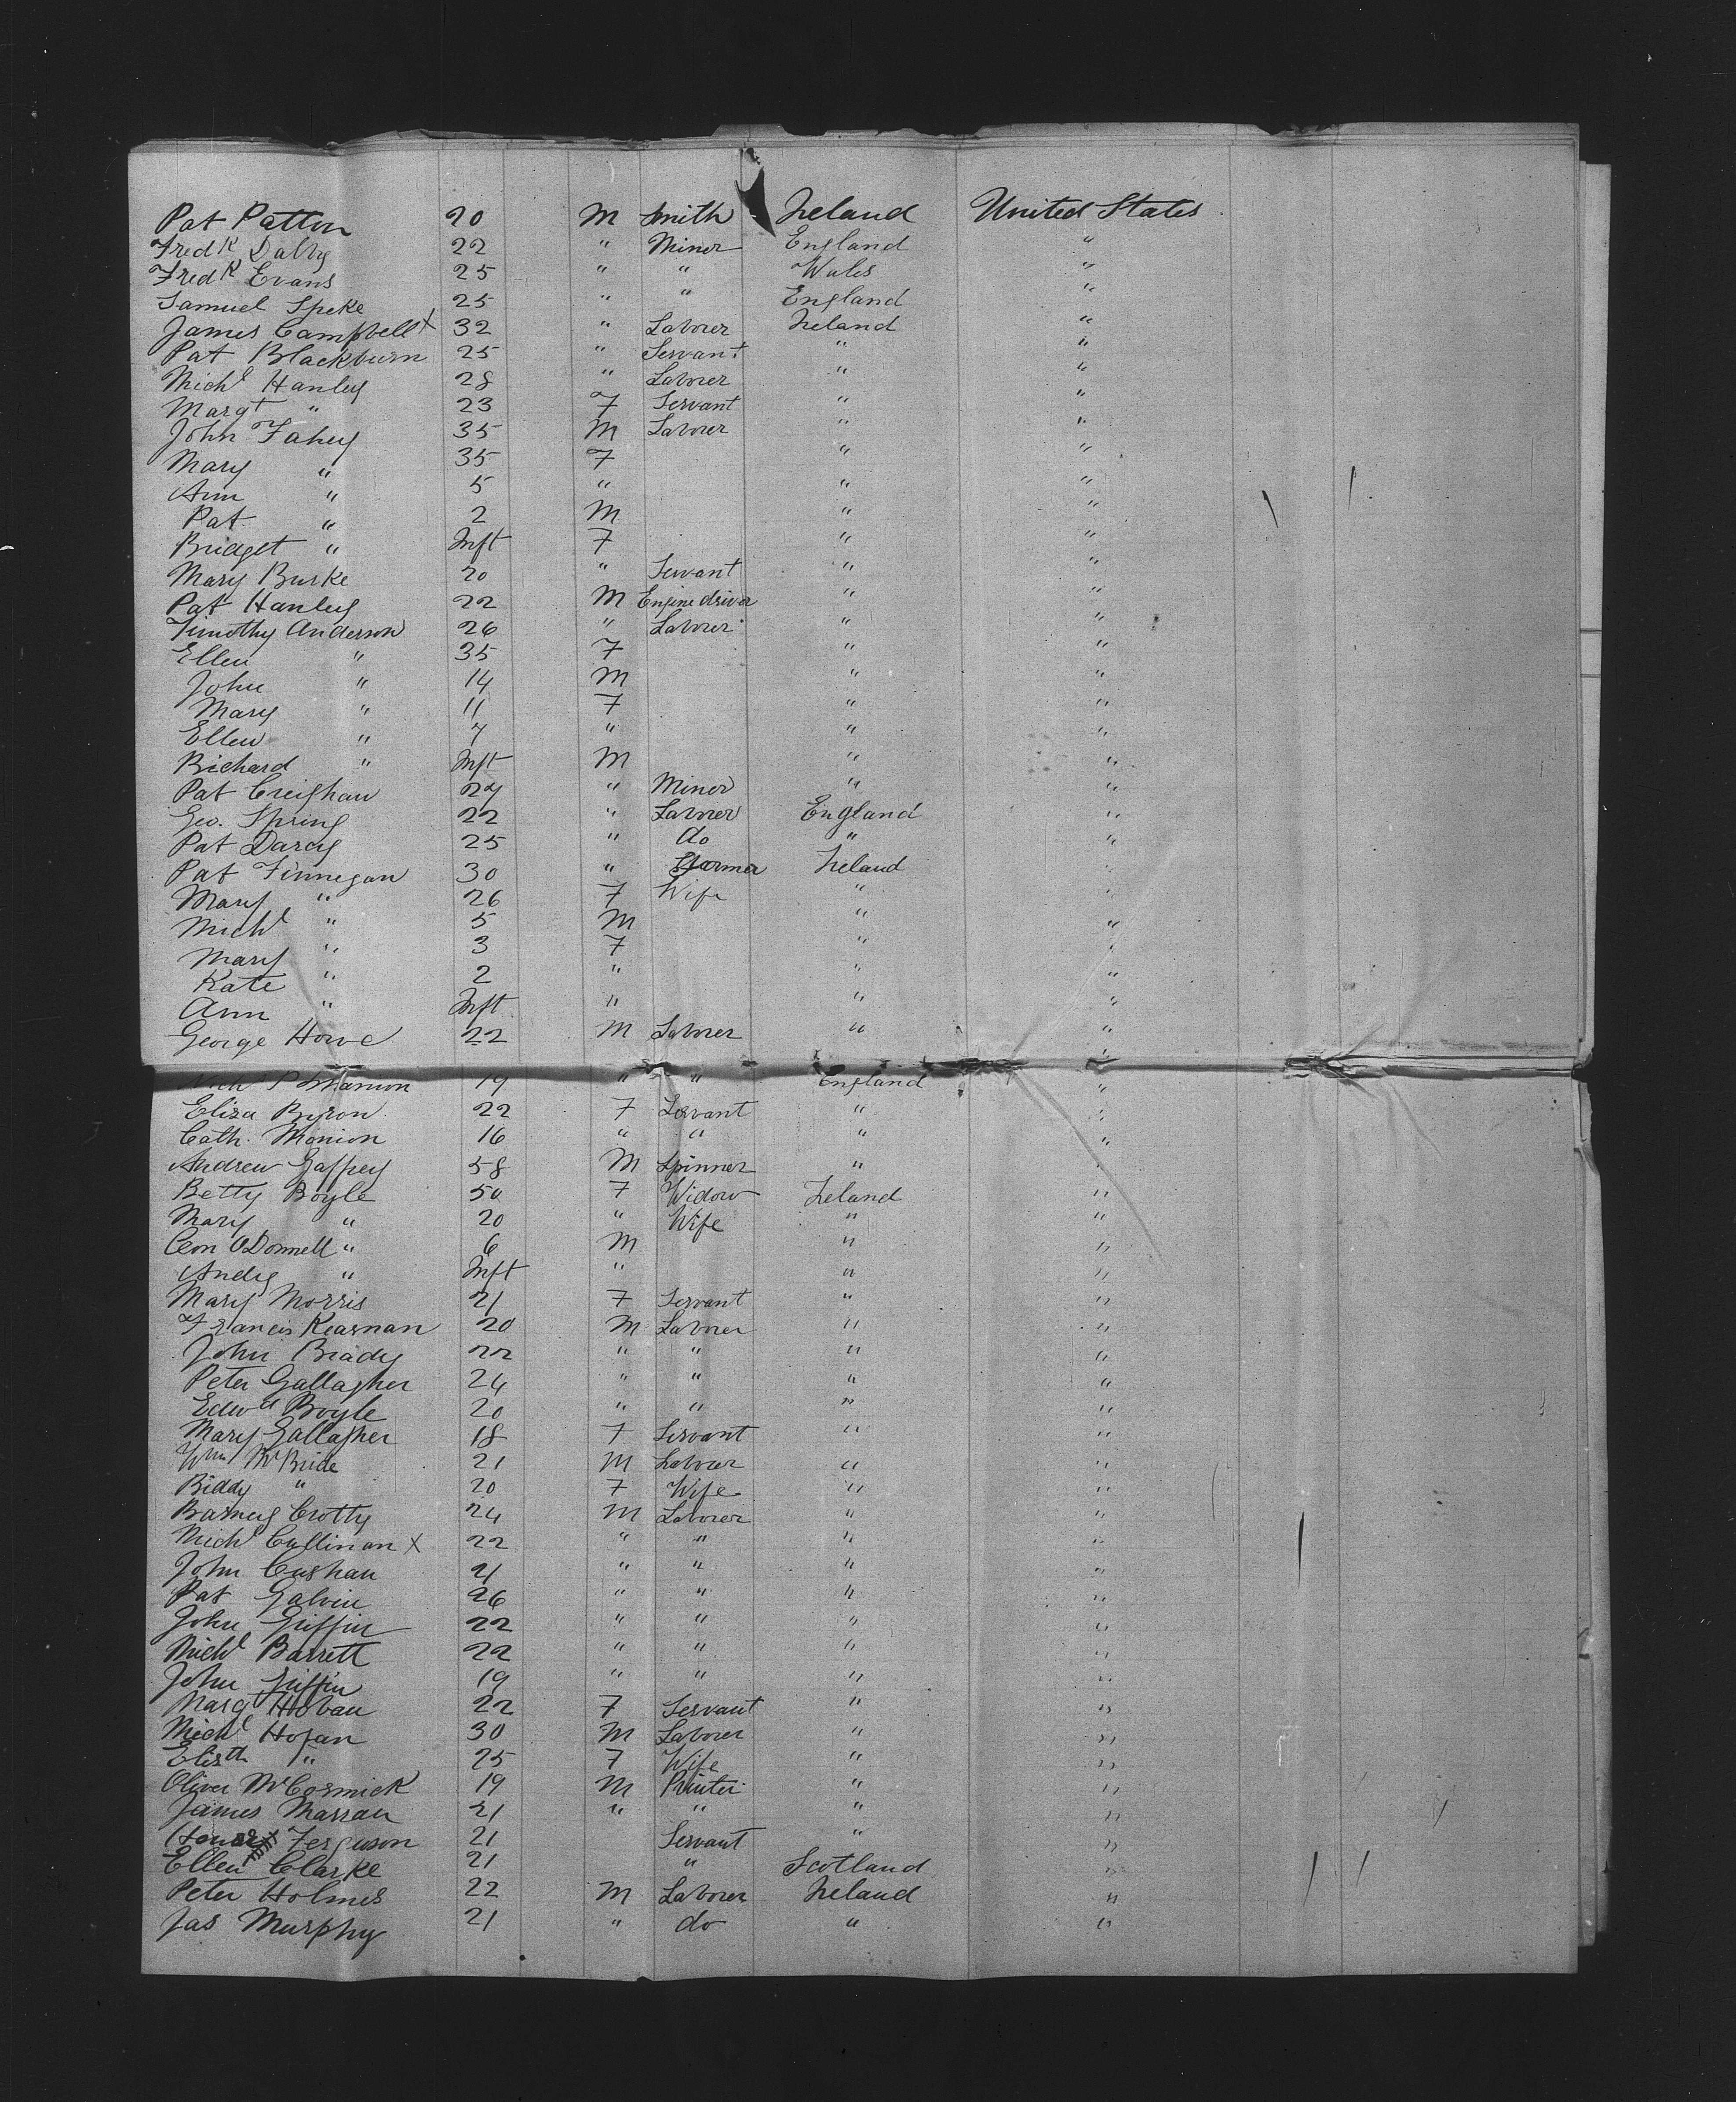 Pat Patton 20 M Smith Ireland United States
Fredk Dalby 22 " Miner England "
Fredk Evans 25 " " Wales "
Samuel Speke 25 " " England "
James Campbell x 32 " Laborer Ireland "
Pat Blackburn 25 " Servant " "
Michl Hanley 28 " Laborer " "
Margt " 23 F Servant " "
John Fahey 35 M Laborer " "
Mary " 35 F " "
Ann " 5 " " "
Pat " 2 M " "
Bridget " Inft F " "
Mary Burke 20 " Servant " "
Pat Hanley 22 M Engine driver " "
Timothy Anderson 26 " Laborer " "
Ellen " 35 F " "
John " 14 M " "
Mary " 11 F " "
Ellen " 7 " " "
Richard " Inft M " "
Pat Creighan 27 " Miner " "
Geo. Spring 22 " Laborer England "
Pat Darcy 25 " do " "
Pat Finnegan 30 " Farmer Ireland "
Mary " 26 F Wife " "
Michl " 5 M " "
Mary " 3 F " "
Kate " 2 " " "
Ann " Inft " " "
George Howe 22 M Laborer " "
19 " " England "
Eliza Byron 22 F Servant " "
Cath. Manion 16 " " " "
Andrew Gaffney 58 M Spinner " "
Betty Boyle 50 F Widow Ireland "
Mary " 20 " Wife " "
Con O'Donnell " 6 M " "
Andy " Inft " " "
Mary Morris 21 F Servant " "
Francis Kearnan 20 M Laborer " "
John Brady 22 " " " "
Peter Gallagher 24 " " " "
Edwd Boyle 20 " " " "
Mary Gallagher 18 F Servant " "
Wm McBride 21 M Laborer " "
Biddy " 20 F Wife " "
Barney Crotty 24 M Laborer " "
Michl Cullinan x 22 " " " "
John Cushan 21 " " " "
Pat Galvin 26 " " " "
John Griffin 22 " " " "
Michl Barrett 22 " " " "
John Griffin 19 " " " "
Margt Hoban 22 F Servant " "
Michl Hogan 30 M Laborer " "
Elizth " 25 F Wife " "
Oliver McCormick 19 M Printer " "
James Marran 21 " " " "
Ferguson 21 Servant " "
Ellen Clarke 21 " Scotland "
Peter Holmes 22 M Laborer Ireland "
Jas Murphy 21 " do " "